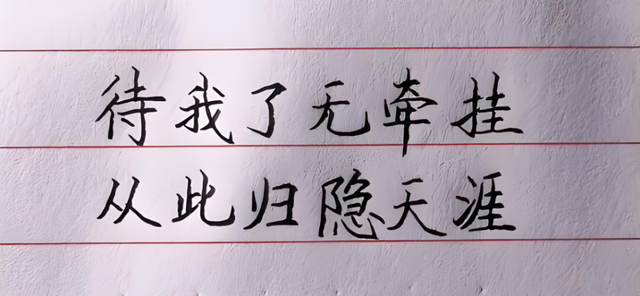 待我了无牵挂
从此归隐天涯